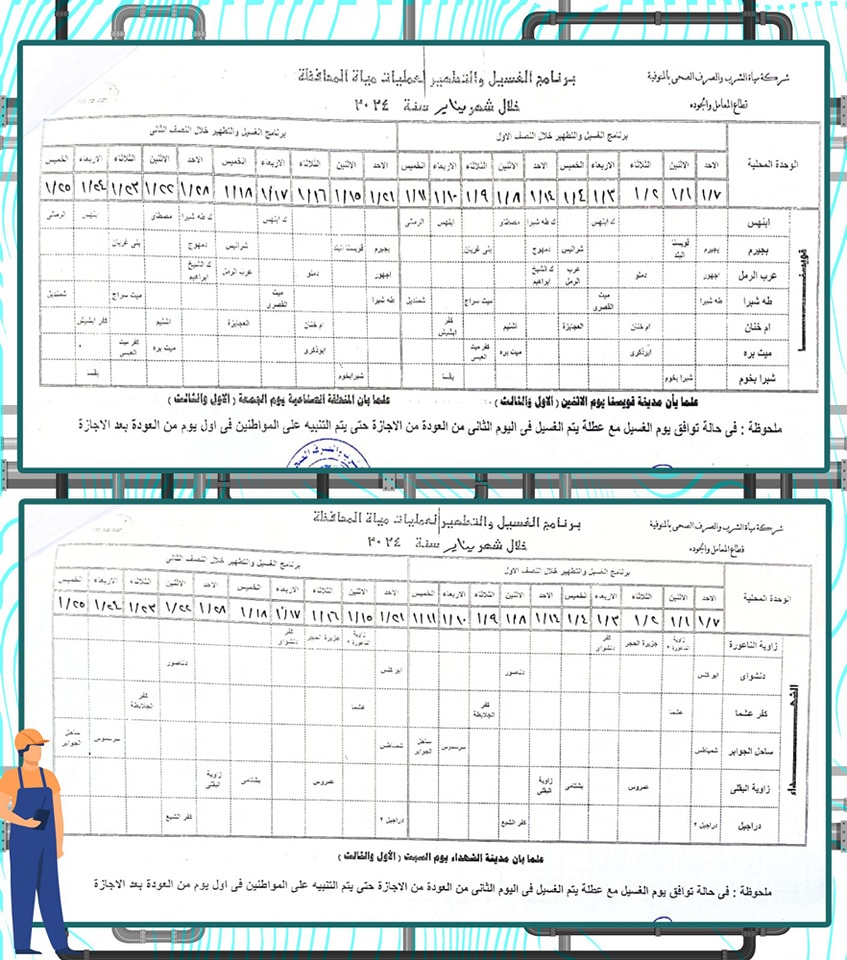 شركة مياة الشرب والصرف الصحى بالمنوفية
قطاع المعامل والجوده
برنامج الغسيل والتطهير لعمليات مياة المحافظة
خلال شهر يناير سنة ٢٠٢٤
الوحدة المحلية برنامج الغسيل والتطهير خلال النصف الاول برنامج الغسيل والتطهير خلال النصف الثانى
الاحد الاثنين الثلاثاء الاربعاء الخميس الاحد الاثنين الثلاثاء الاربعاء الخميس الاحد الاثنين الثلاثاء الاربعاء الخميس الاحد الاثنين الثلاثاء الاربعاء الخميس
١/٧ ١/١ ١/٢ ١/٣ ١/٤ ١/١٤ ١/٨ ١/٩ ١/١٠ ١/١١ ١/٢١ ١/١٥ ١/١٦ ١/١٧ ١/١٨ ١/٢٨ ١/٢٢ ١/٢٣ ١/٢٤ ١/٢٥
قويسنا
ابنهس ك ابنهس ك طه شبرا مصطاو ابنهس الرمالى ك ابنهس ك طه شبرا مصطاو ابنهس الرمالى
بجيرم بجيرم قويسنا البلد شرانيس دمهوج بنى غريان بجيرم قويسنا البلد شرانيس دمهوج بنى غريان
عرب الرمل اجهور دملو عرب الرمل ك الشيخ ابراهيم اجهور دملو عرب الرمل ك الشيخ ابراهيم
طه شبرا طه شبرا ميت القصرى ميت سراج شمنديل طه شبرا ميت القصرى ميت سراج شمنديل
ام خنان ام خنان العجايزة اشليم كفر ابشيش ام خنان العجايزة اشليم كفر ابشيش
ميت بره ابوذكرى ميت بره كفر ميت العبسى ابوذكرى ميت بره كفر ميت العبسى
شبرا بخوم شبرا بخوم بقسا شبرابخوم بقسا
علما بأن مدينة قويسنا يوم الاثنين ( الاول والثالث ) علما بان المنطقة الصناعية يوم الجمعة ( الاول والثالث )
ملحوظة : فى حالة توافق يوم الغسيل مع عطلة يتم الغسيل فى اليوم الثانى من العودة من الاجازة حتى يتم التنبيه على المواطنين فى اول يوم من العودة بعد الاجازة
شركة مياة الشرب والصرف الصحى بالمنوفية
قطاع المعامل والجوده
برنامج الغسيل والتطهير لعمليات مياة المحافظة
خلال شهر يناير سنة ٢٠٢٤
الوحدة المحلية برنامج الغسيل والتطهير خلال النصف الاول برنامج الغسيل والتطهير خلال النصف الثانى
الاحد الاثنين الثلاثاء الاربعاء الخميس الاحد الاثنين الثلاثاء الاربعاء الخميس الاحد الاثنين الثلاثاء الاربعاء الخميس الاحد الاثنين الثلاثاء الاربعاء الخميس
١/٧ ١/١ ١/٢ ١/٣ ١/٤ ١/١٤ ١/٨ ١/٩ ١/١٠ ١/١١ ١/٢١ ١/١٥ ١/١٦ ١/١٧ ١/١٨ ١/٢٨ ١/٢٢ ١/٢٣ ١/٢٤ ١/٢٥
الشهداء
زاوية الناعورة زاوية الناعورة ٢ جزيرة الحجر كفر دنشواى زاوية الناعورة ٢ جزيرة الحجر كفر دنشواى
دنشواى ابو كلس دناصور ابو كلس دناصور
كفر عشما عشما كفر الجلابطة عشما كفر الجلابطة
ساحل الجوابر شمياطس سرسموس ساحل الجوابر شمياطس سرسموس ساحل الجوابر
زاوية البقلى عمروس بشتامى زاوية البقلى عمروس بشتامى زاوية البقلى
دراجيل دراجيل ٢ كفر الشبع دراجيل ٢ كفر الشبع
علما بان مدينة الشهداء يوم السبت ( الأول والثالث )
ملحوظة : فى حالة توافق يوم الغسيل مع عطلة يتم الغسيل فى اليوم الثانى من العودة من الاجازة حتى يتم التنبيه على المواطنين فى اول يوم من العودة بعد الاجازة